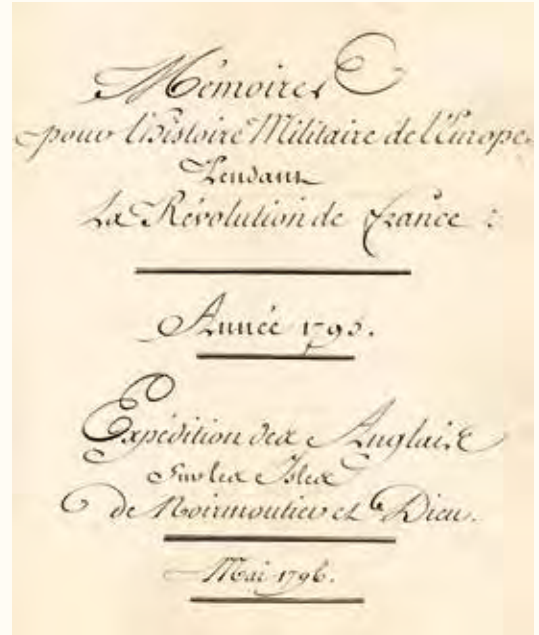 Mémoires
pour l'histoire Militaire de l'Europe
Pendant
La Révolution de france :
Année 1795.
Expédition des Anglais
sur les Isles
de Noirmoutier et Dieu.
Mai 1796.